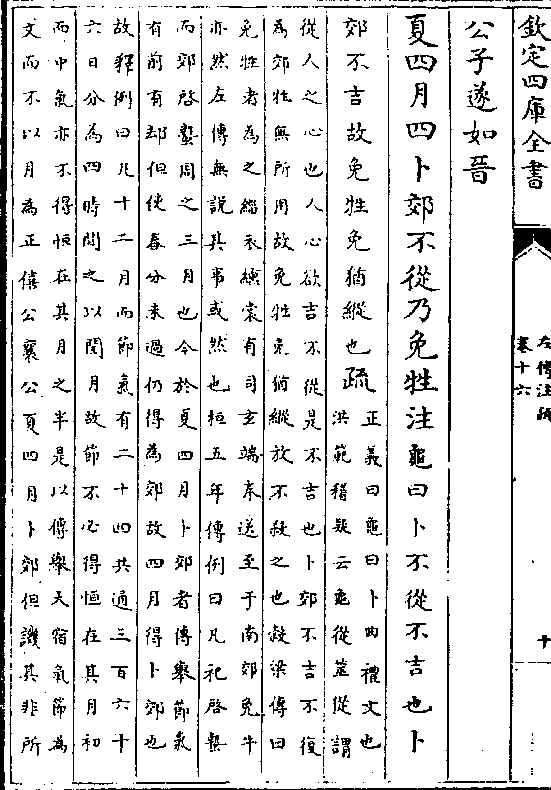 欽定四庫全書
左傳注疏
卷十六
十
公子遂如晉
夏四月四卜郊不從乃免牲注龜曰卜不從不吉也卜
郊不吉故免牲免猶縱也疏
正義曰龜曰卜曲禮文也
洪範稽疑云龜從筮從謂
從人之心也人心欲吉不從是不吉也卜郊不吉不復
為郊牲無所用故免牲免猶縱放不殺之也穀梁傳曰
免牲者為之緇衣纁裳有司玄端奉送至于南郊免牛
亦然左傳無說其事或然也桓五年傳例曰凡祀啓蟄
而郊啓蟄周之三月也今於夏四月卜郊者傳舉節氣
有前有却但使春分未過仍得為郊故四月得卜郊也
故釋例曰凡十二月而節氣有二十四共通三百六十
六日分為四時間之以閏月故節不必得恒在其月初
而中氣亦不得恒在其月之半是以傳舉天宿氣節為
文而不以月為正僖公襄公夏四月卜郊但譏其非所